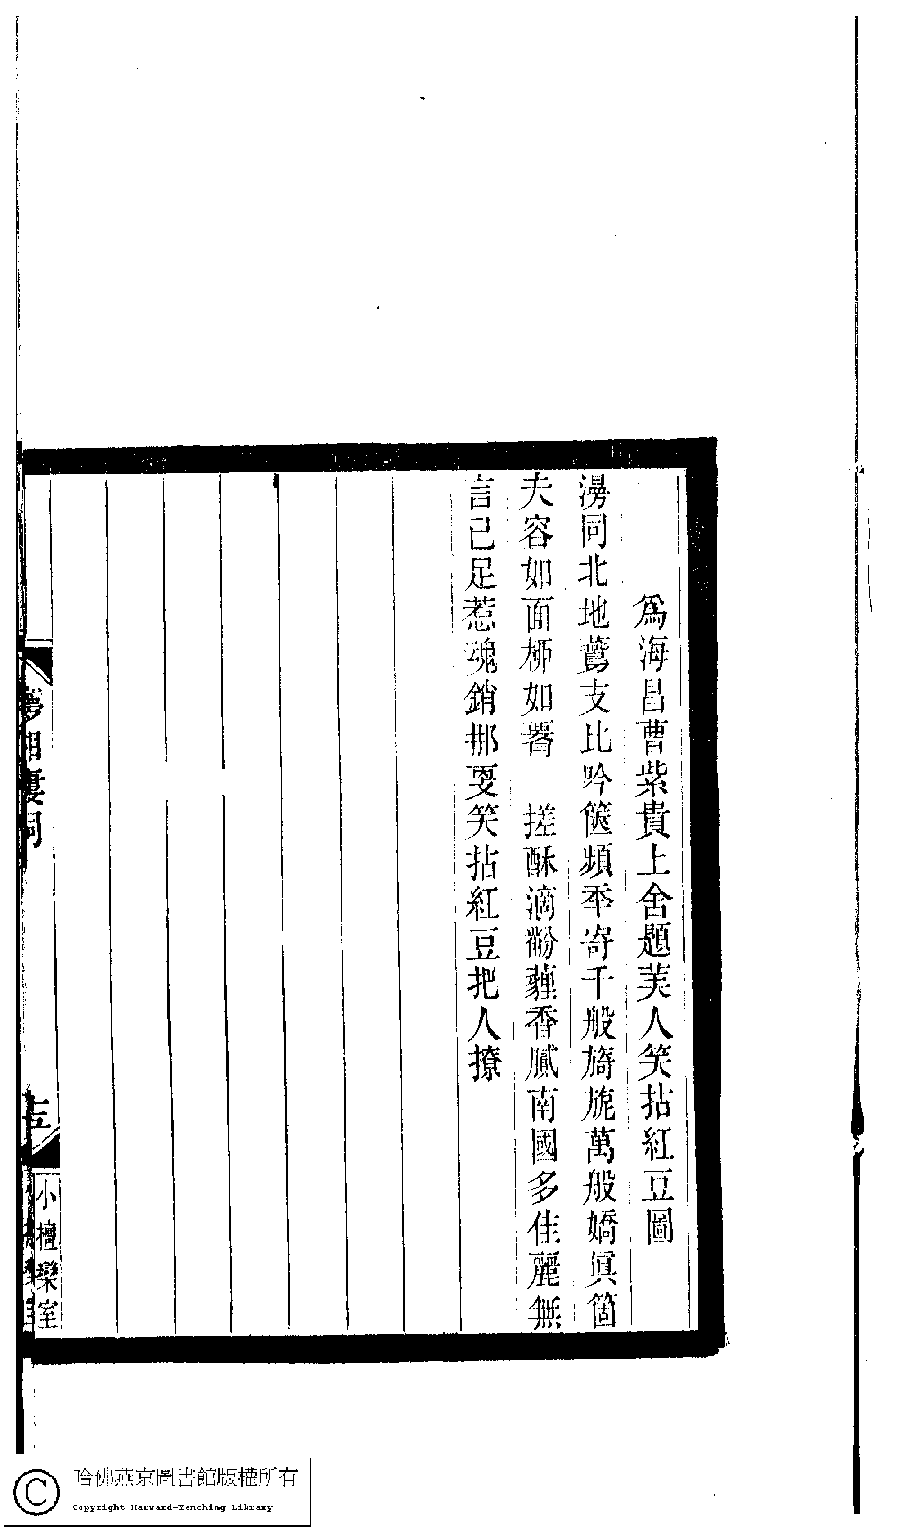 為海昌曹紫貴上舍題美人笑拈紅豆圖
漫同北地鸎支比吟篋頻年寄千般旖旎萬般嬌眞箇
夫容如面桺如霤　搓酥滴粉蘸香膩南國多佳麗無
言已足惹魂銷那更笑拈紅豆把人撩
夢湘樓詞
小檀欒室
哈佛燕京圖書館版權所有
Copyright Harvard-Yenching Library